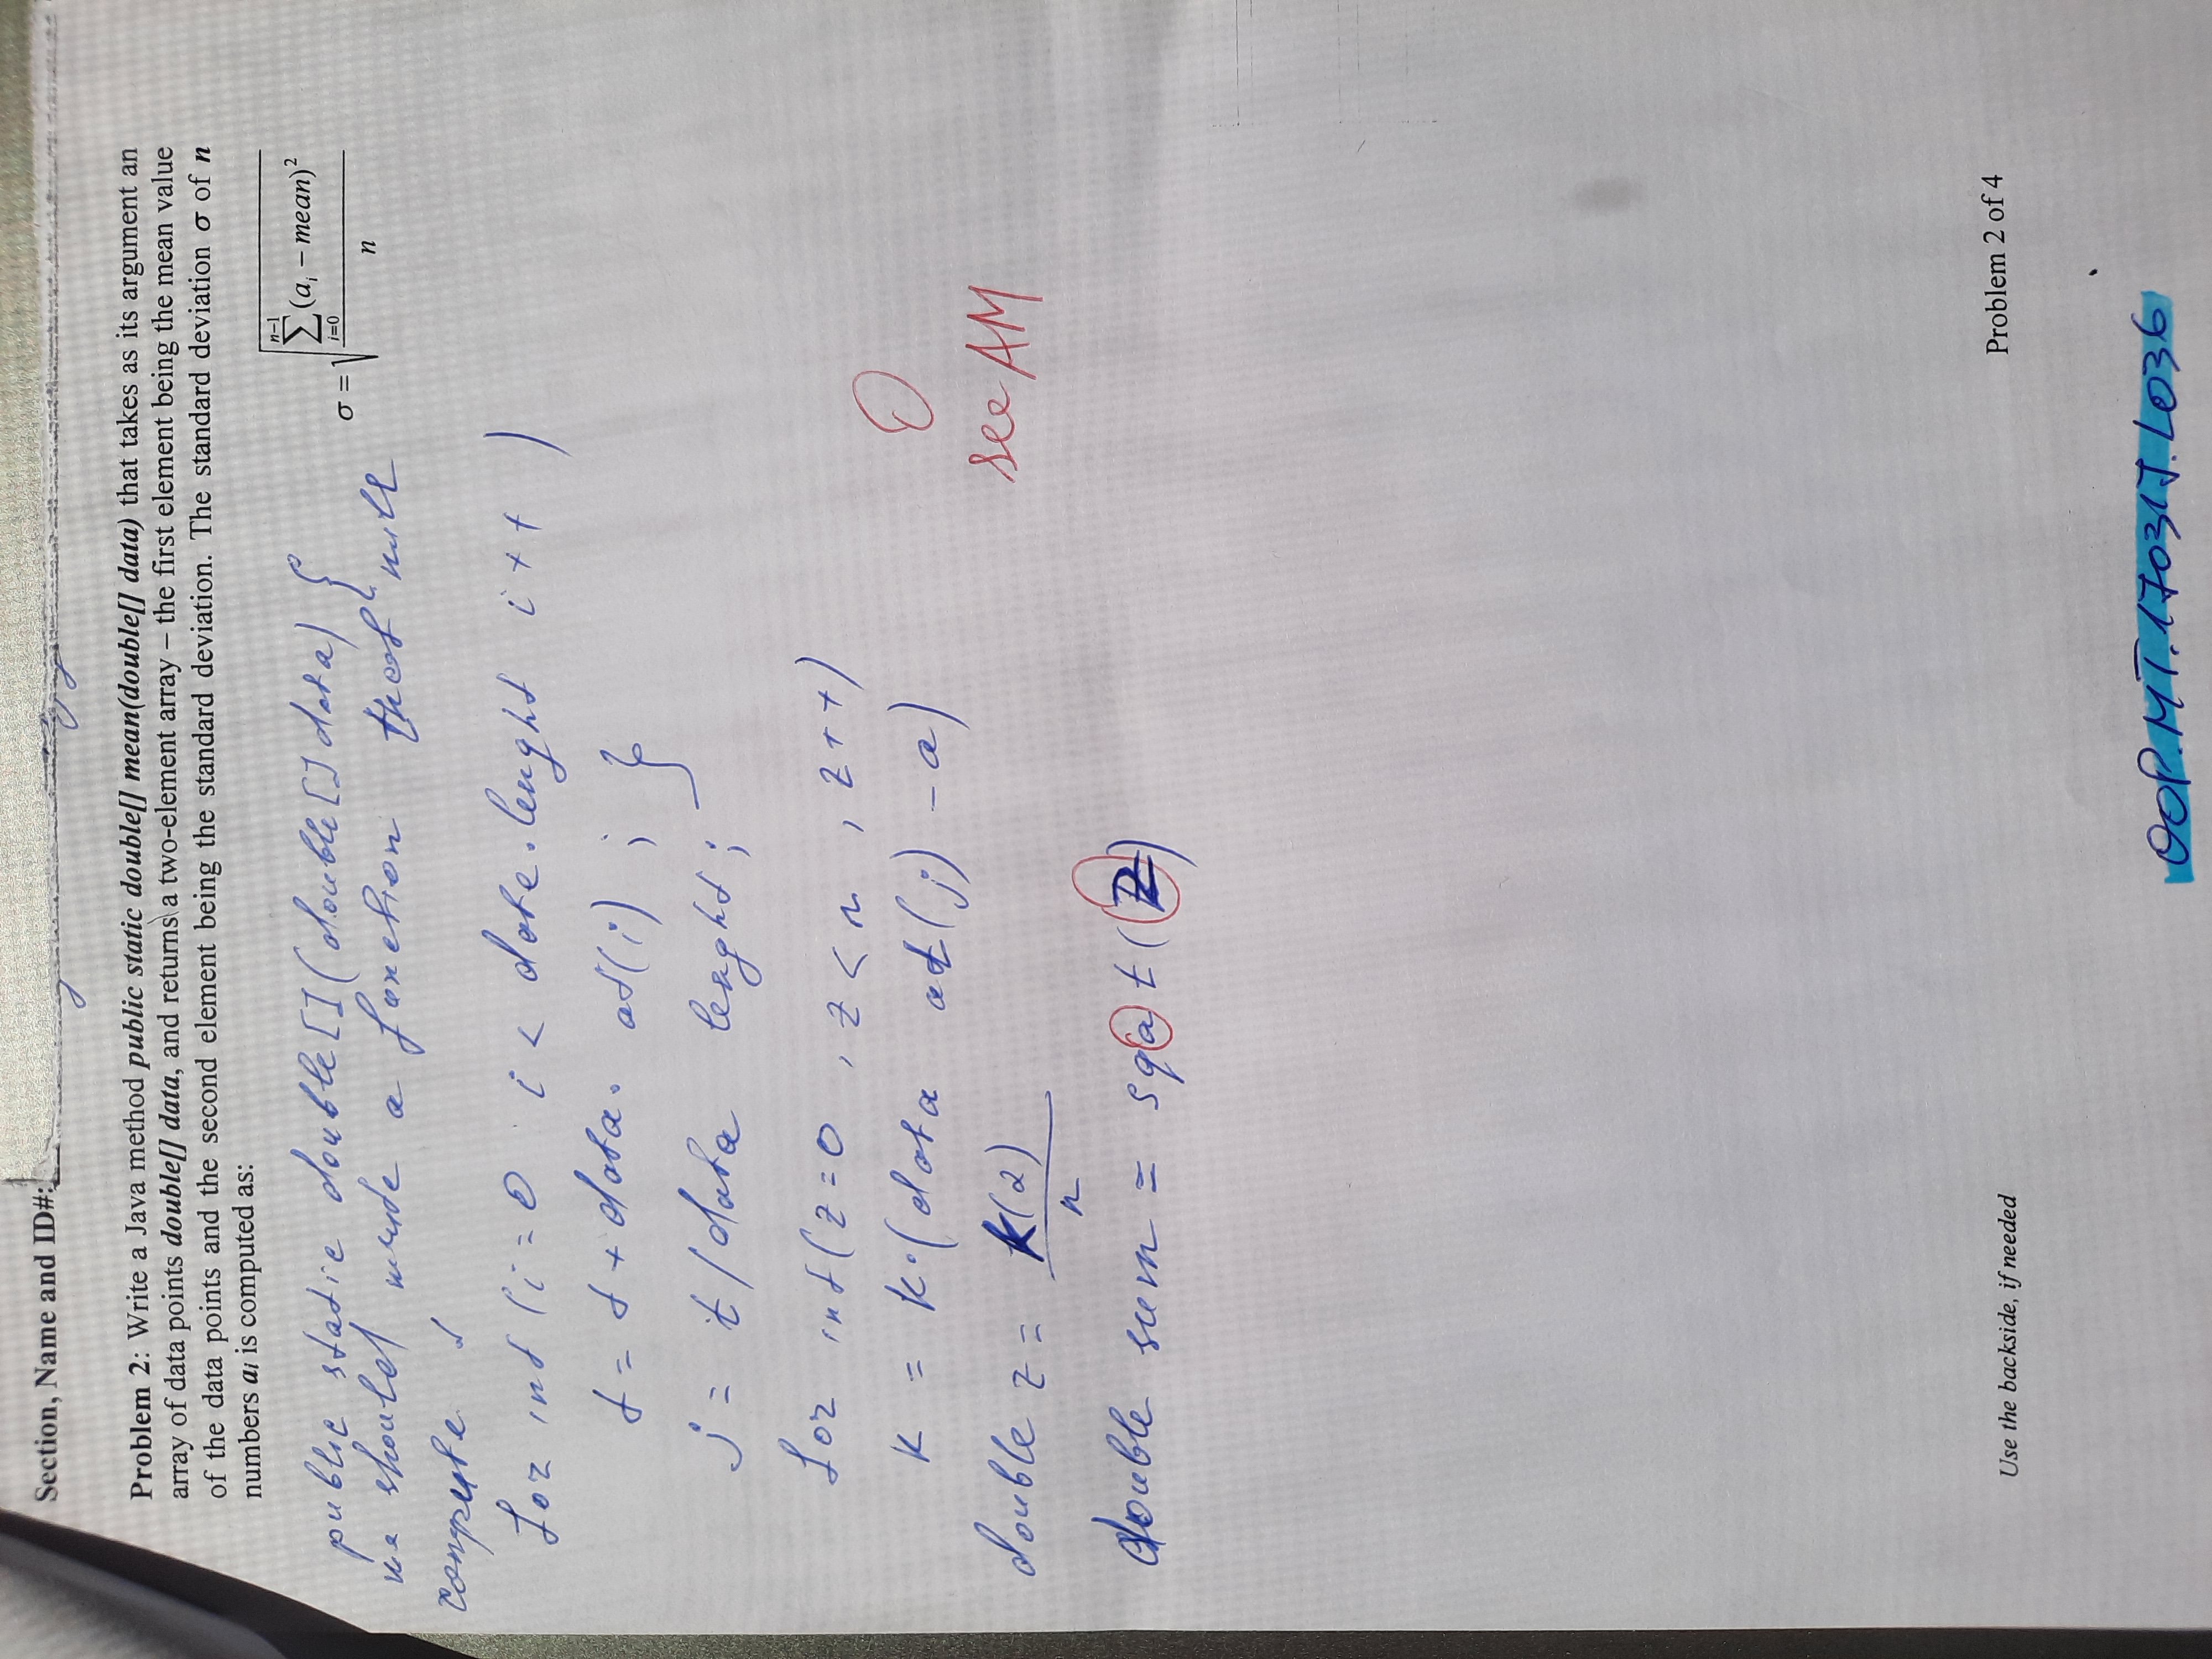 Section, Name and ID#:
Problem 2: Write a Java method public static double[] mean(double[] data) that takes as its argument an
array of data points double[] data, and returns a two-element array – the first element being the mean value
of the data points and the second element being the standard deviation. The standard deviation σ of n
numbers aᵢ is computed as:
σ = √(∑_{i=0}^{n−1} (aᵢ − mean)² / n)
public static double[] (double[] data) {
we should write a function that will
compute :
for int (i = 0 i < date.lenght i++ )
t = t + data. at(i) ; }
j = t / data lenght ;
for int (z = 0 , z < n , z++)
k = k·(data at(j) - a)
double z = k(2)
n
double sum = sqat(z)
0
see AM
Use the backside, if needed
Problem 2 of 4
OOP.MT.170317.L036